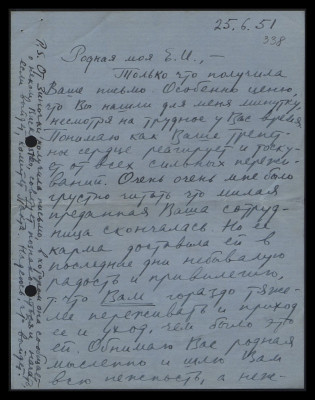 25.6.51
338
Родная моя Е.И.,—
Только что получила
Ваше письмо. Особенно ценю,
что Вы нашли для меня минутку,
несмотря на трудное у Вас время
Понимаю как Ваше трепет-
ное сердце реагирует и тоску-
ет от всех сильных пережи-
ваний. Очень очень мне было
грустно читать что милая
преданная Ваша сотруд-
ница скончалась. Но её
карма доставила ей в
последние дни небывалую
радость и привилегию,
т.что Вам гораздо тяже-
лее переживать и приход
её и уход, чем было это
ей. Обнимаю Вас родная
мысленно и шлю Вам
всю нежность, а неж-
P.S. От Зиночки получила письмо, в котором она сообщает